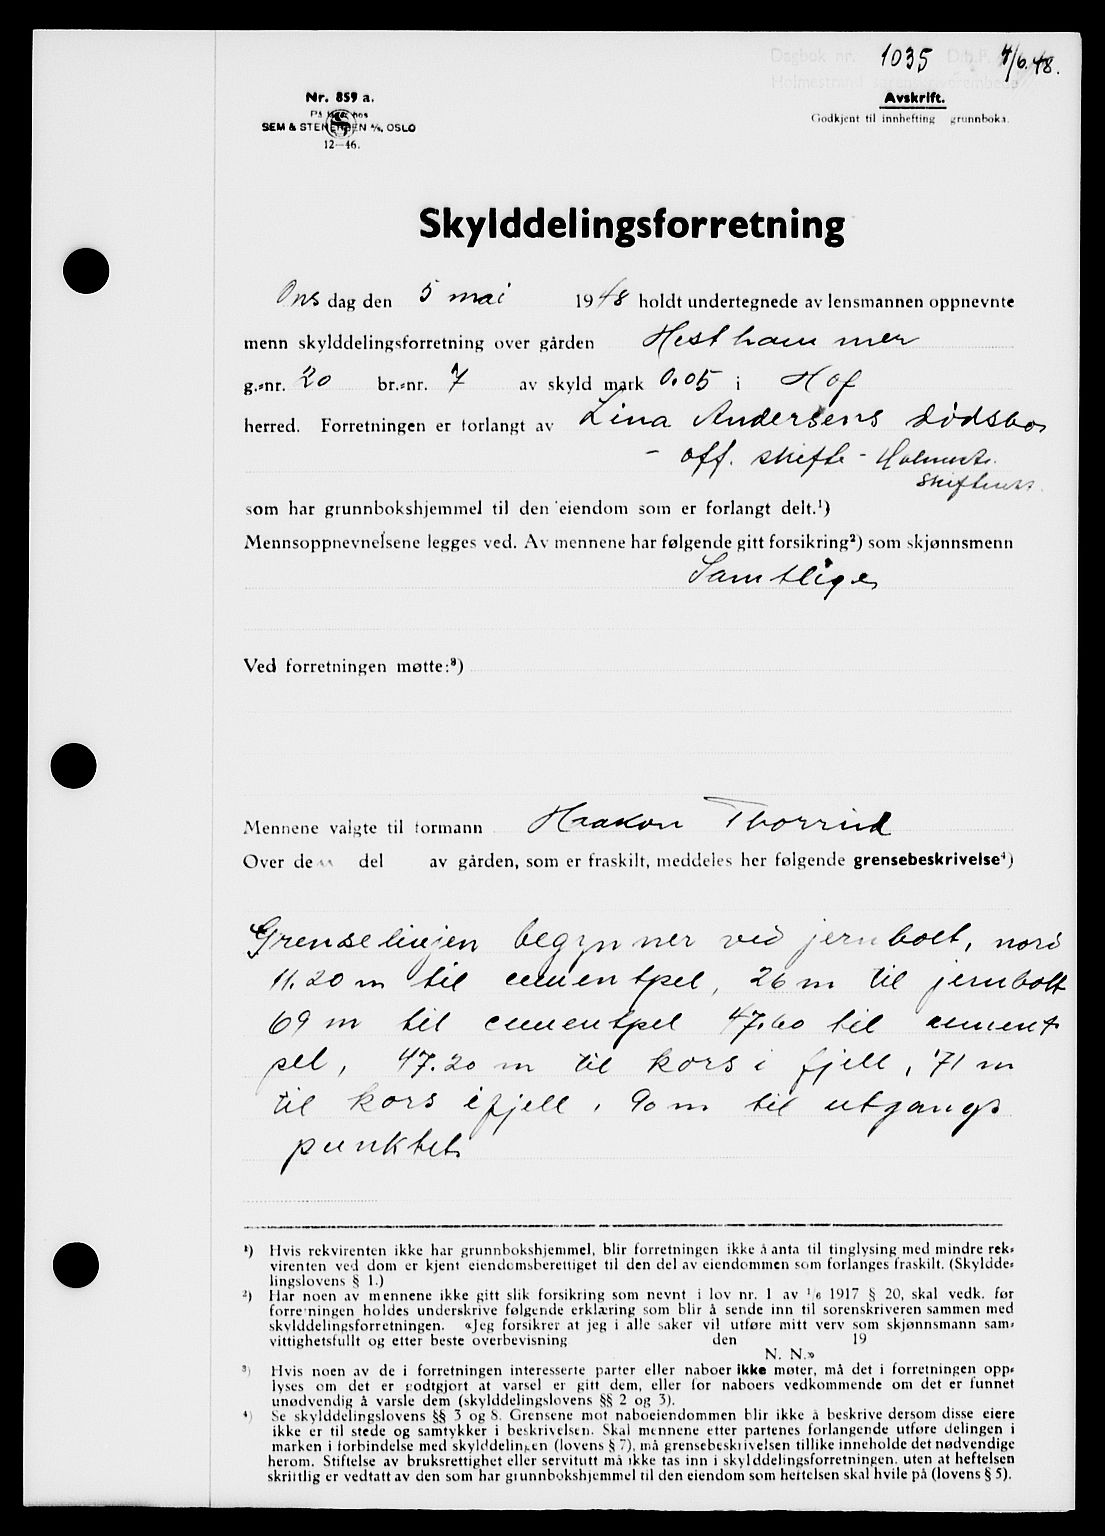 Dagbok nr. 1035 D.b.P. 4/6.48.
Holmestrand sorenskriverembede
Nr. 859 a.
På lager hos
SEM & STENERSEN A/S, OSLO
12—46.
Avskrift.
Godkjent til innhefting grunnboka.
Skylddelingsforretning
Ons dag den 5 mai 1948 holdt undertegnede av lensmannen oppnevnte
menn skylddelingsforretning over gården Hesthammer
g.-nr. 20 br.-nr. 7 av skyld mark 0.05 i Hof
herred. Forretningen er forlangt av Lina Andersens dødsbo
- off. skifte - Holmestr.
skifterett.
som har grunnbokshjemmel til den eiendom som er forlangt delt.¹)
Mennsoppnevnelsene legges ved. Av mennene har følgende gitt forsikring²) som skjønnsmenn
Samtlige
Ved forretningen møtte:³)
Mennene valgte til formann Haakon Thorrud
Over de del av gården, som er fraskilt, meddeles her følgende grensebeskrivelse⁴)
Grenselinjen begynner ved jernbolt, nord
11.20 m til cementpel, 26 m til jernbolt
69 m til cementpel 47.60 til cement
pel, 47.20 m til kors i fjell, 71 m
til kors i fjell, 90 m til utgangs
punktet.
¹) Hvis rekvirenten ikke har grunnbokshjemmel, blir forretningen ikke å anta til tinglysing med mindre rek-
virenten ved dom er kjent eiendomsberettiget til den del av eiendommen som forlanges fraskilt. (Skyldde-
lingslovens § 1.)
²) Har noen av mennene ikke gitt slik forsikring som nevnt i lov nr. 1 av 1/6 1917 § 20, skal vedk. før
forretningen holdes underskrive følgende erklæring som blir å sende inn til sorenskriveren sammen med
skylddelingsforretningen. «Jeg forsikrer at jeg i alle saker vil utføre mitt verv som skjønnsmann sam-
vittighetsfullt og etter beste overbevisning den 19
N. N.»
³) Hvis noen av de i forretningen interesserte parter eller naboer ikke møter, må det i forretningen opp-
lyses om det er godtgjort at varsel er gitt dem, eller for naboers vedkommende om det er funnet
unødvendig å varsle dem (skylddelingslovens §§ 2 og 3).
⁴) Se skylddelingslovens §§ 3 og 8. Grensene mot naboeiendommen blir ikke å beskrive dersom disse eiere
ikke er til stede og samtykker i beskrivelsen. Skal mennene etter partenes forlangende utføre delingen i
marken i forbindelse med skylddelingen (lovens § 7), må grensebeskrivelsen tillike inneholde det nødvendige
herom. Stiftelse av bruksrettighet eller servitutt må ikke tas inn i skylddelingsforretningen, uten at heftelsen
skriftlig er vedtatt av den som har grunnbokshjemmel til den eiendom som heftelsen skal hvile på (lovens § 5).